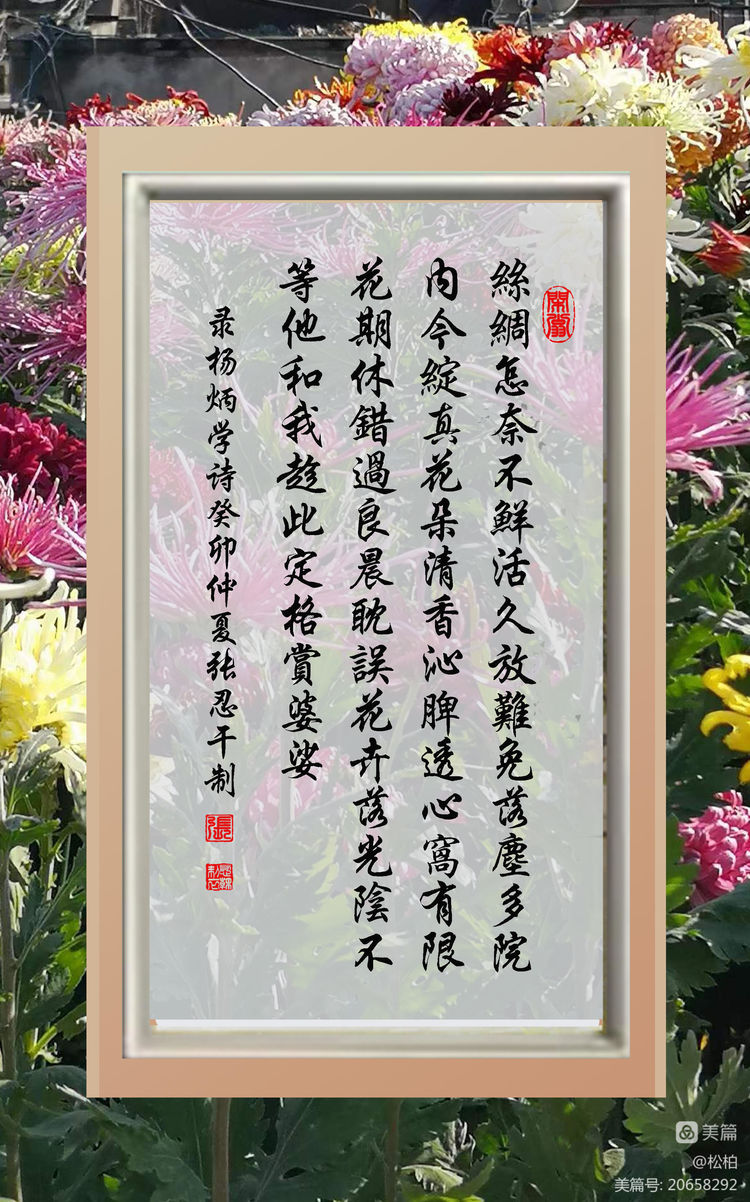 絲綢怎奈不鮮活久放難免落塵多院
内今綻真花朵清香沁脾透心窩有限
花期休錯過良晨耽誤花卉落光陰不
等他和我趁此定格賞婆娑
录杨炳学诗癸卯仲夏张忍干制
張
美篇
@松柏
美篇号: 20658292